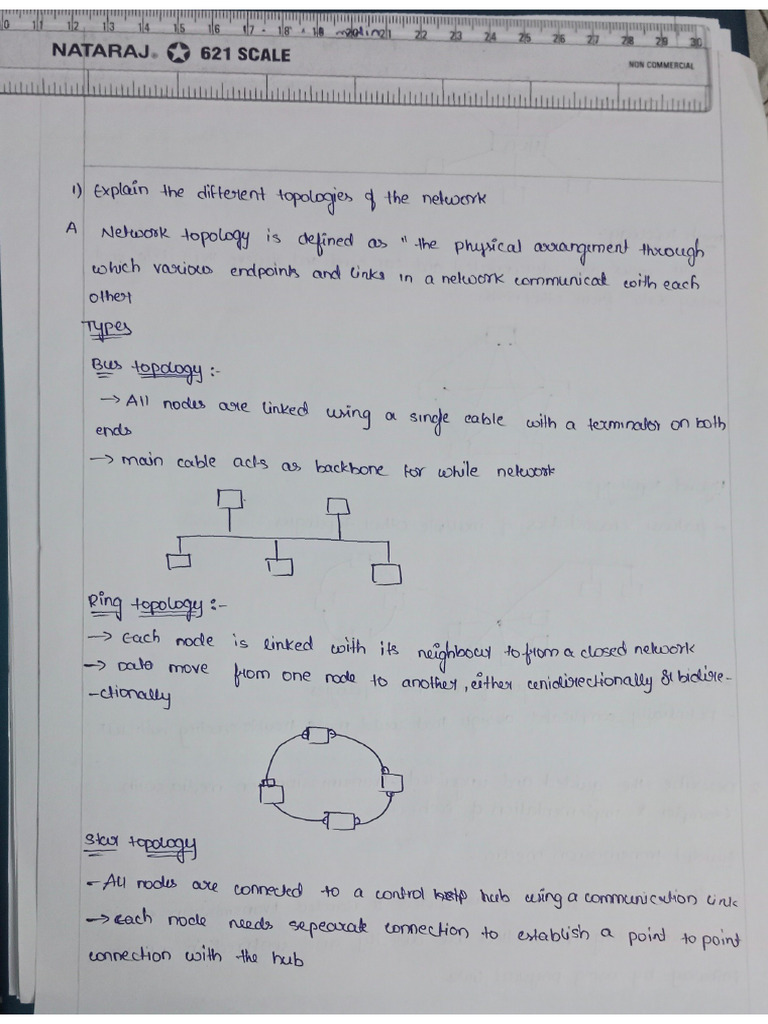 10 11 12 13 14 15 16 17 18 19 21 22 23 24 25 26 27 28 29 30
NATARAJ. 621 SCALE
NON COMMERCIAL
1) Explain the different topologies of the network
A Network topology is defined as " the physical arrangement through
which various endpoints and links in a network communicat with each
other
Types
Bus topology :-
→ All nodes are linked using a single cable with a terminator on both
ends
→ main cable acts as backbone for while network
Ring topology :-
→ Each node is linked with its neighbour to from a closed network
→ Data move from one node to another, either unidirectionally & bidire-
-ctionally
Star topology
- All nodes are connected to a control hub using a communication link
→ each node needs sepearate connection to establish a point to point
connection with the hub